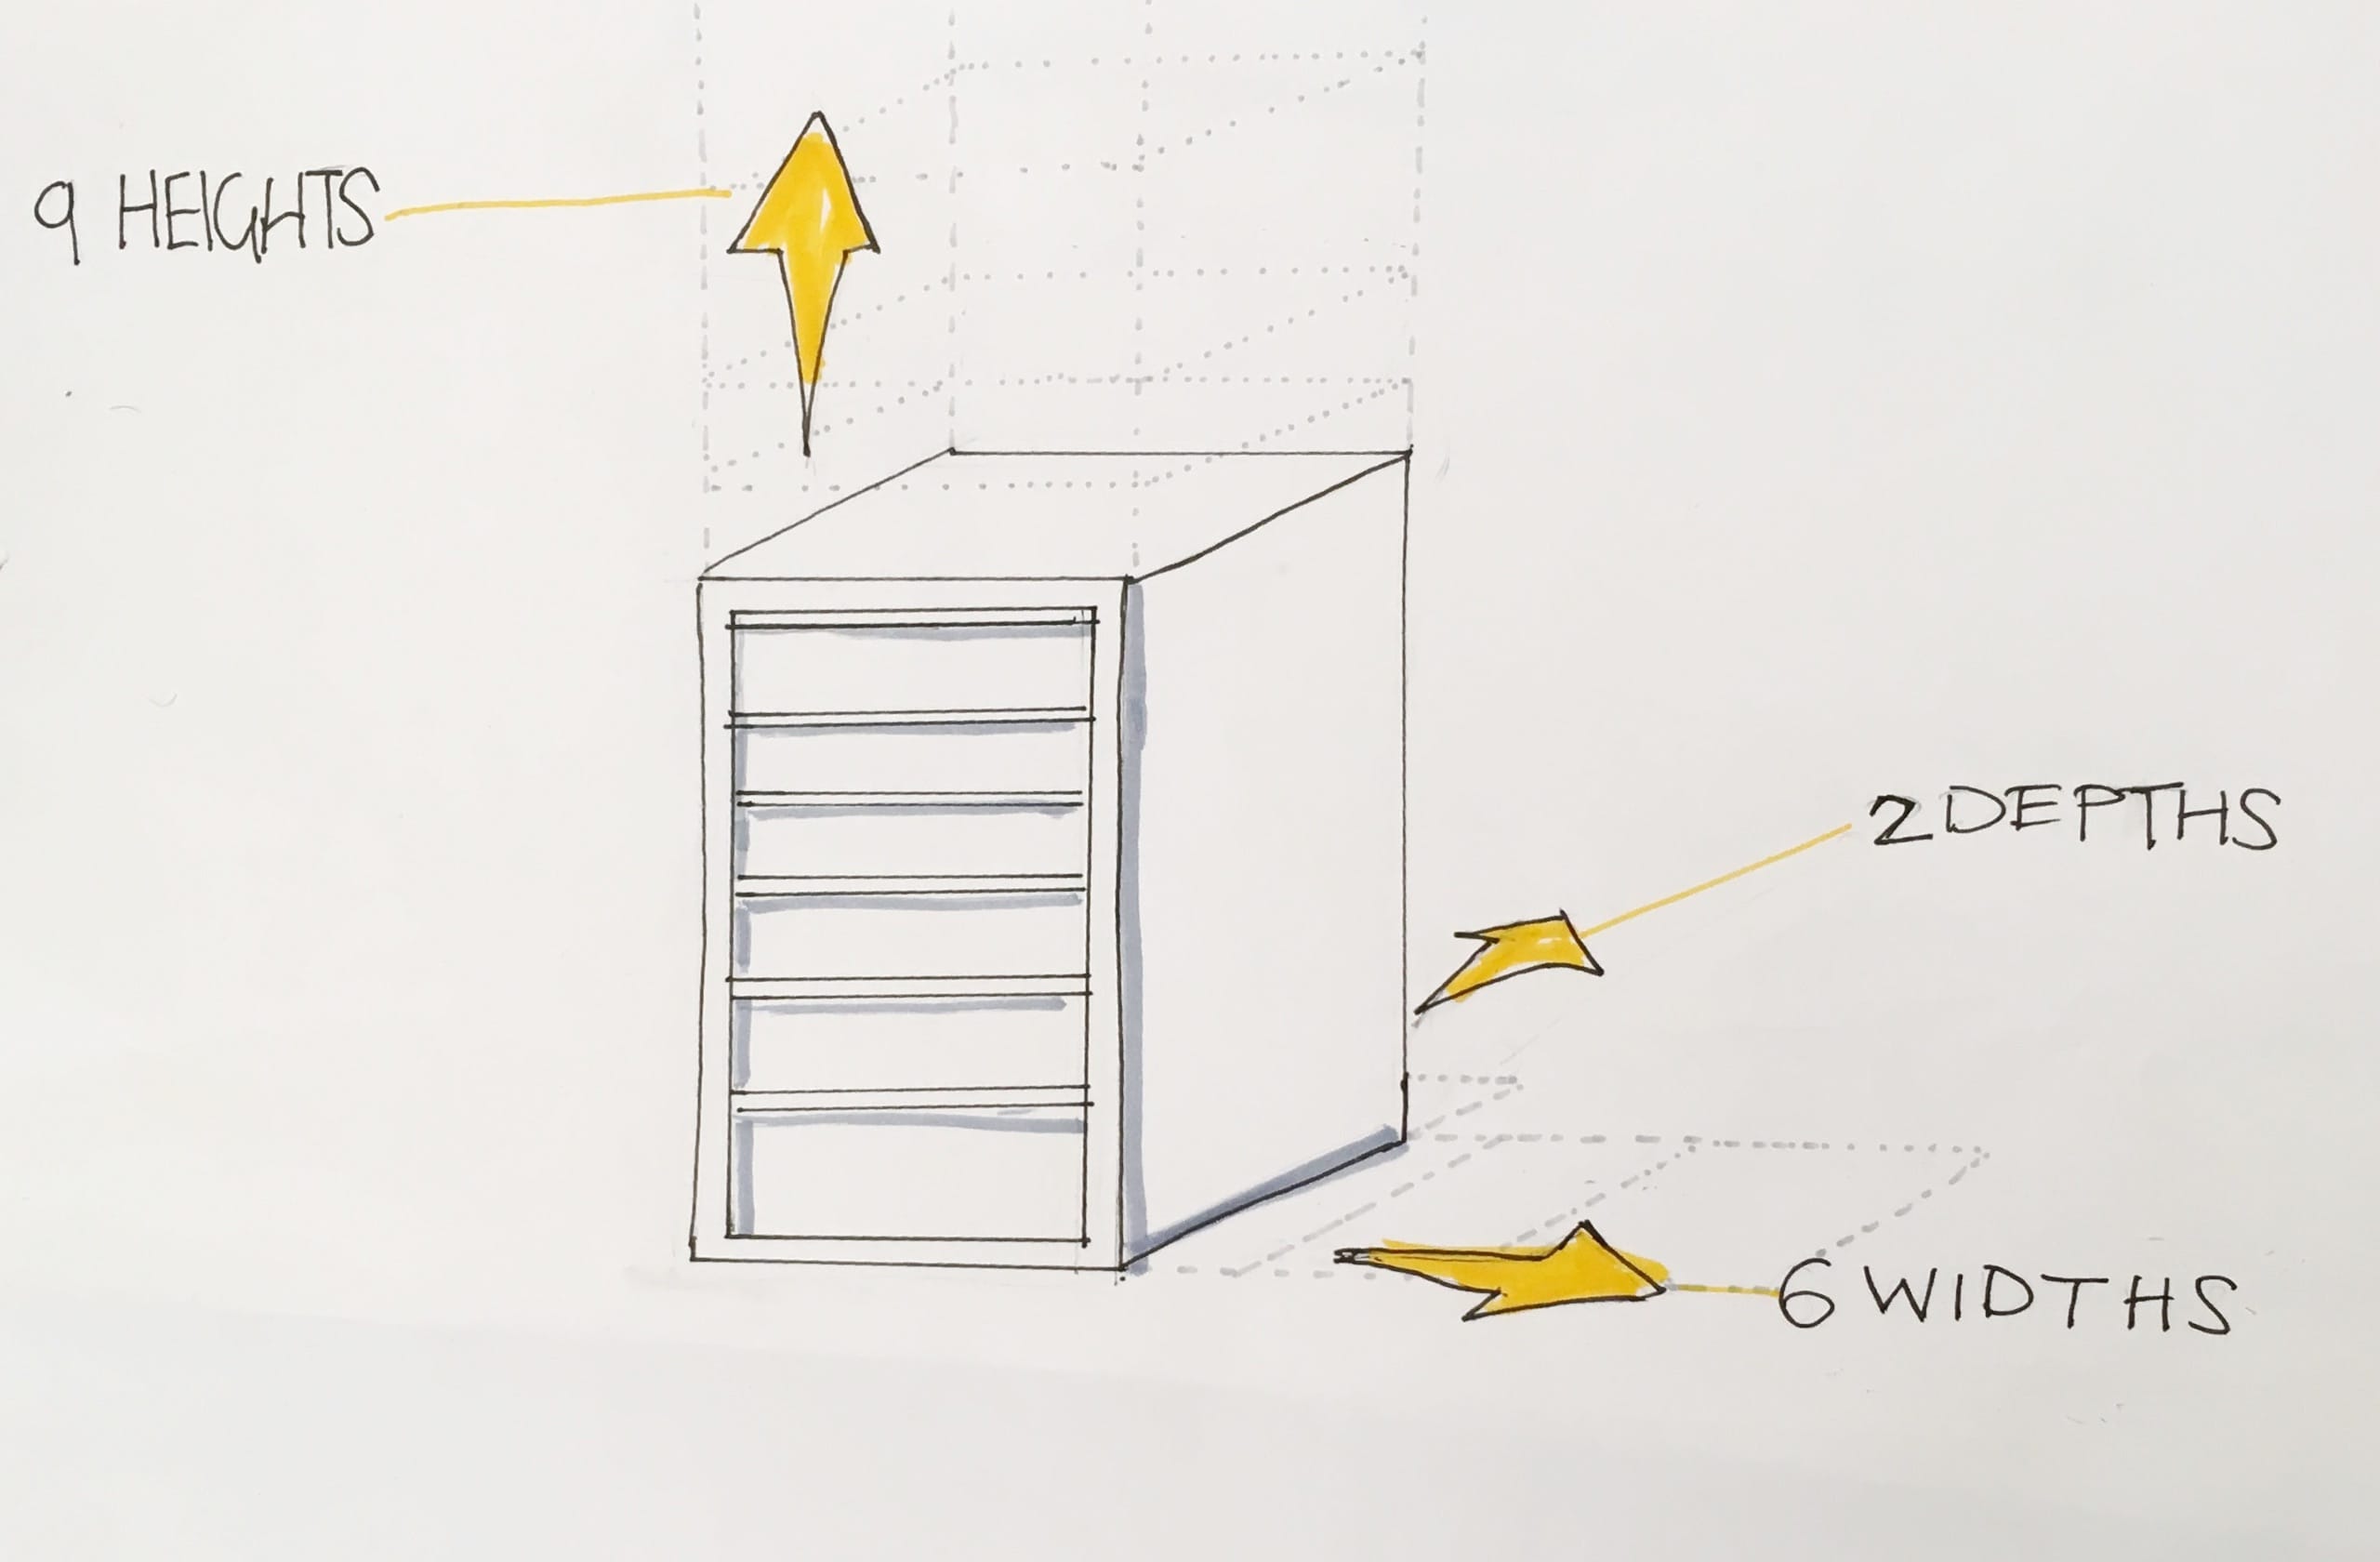 9 HEIGHTS
2 DEPTHS
6 WIDTHS